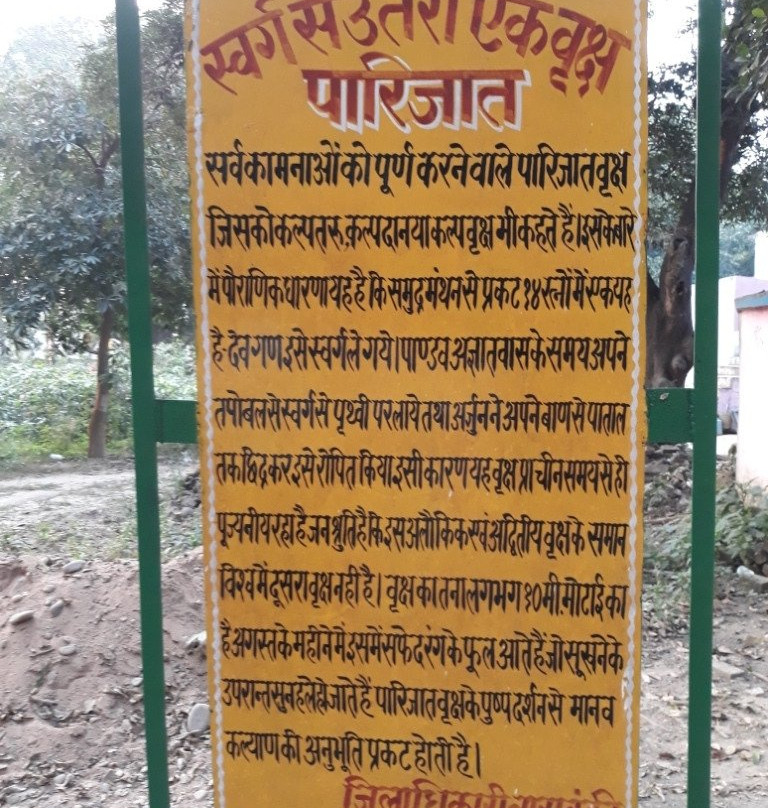 स्वर्ग से उतरा एक वृक्ष
पारिजात
सर्वकामनाओं को पूर्ण करने वाले पारिजात वृक्ष
जिसको कल्पतरू, कल्पदानया कल्पवृक्ष भी कहते हैं। इसके बारे
में पौराणिक धारणा यह है कि समुद्र मंथन से प्रकट १४ रत्नों में एक यह
है देवगण इसे स्वर्ग ले गये। पाण्डव अज्ञातवास के समय अपने
तपोबल से स्वर्ग से पृथ्वी पर लाये तथा अर्जुन ने अपने बाण से पाताल
तक छिद्र कर इसे रोपित किया इसी कारण यह वृक्ष प्राचीन समय से ही
पूज्यनीय रहा है जनश्रुति है कि इस अलौकिक एवं अद्वितीय वृक्ष के समान
विश्व में दूसरा वृक्ष नही है। वृक्ष का तना लगभग १० मी मोटाई का
है अगस्त के महीने में इसमें सफेद रंग के फूल आते हैं जो सूखने के
उपरान्त सुनहले हो जाते हैं पारिजात वृक्ष के पुष्प दर्शन से मानव
कल्याण की अनुभूति प्रकट होती है।
जिलाधिकारी